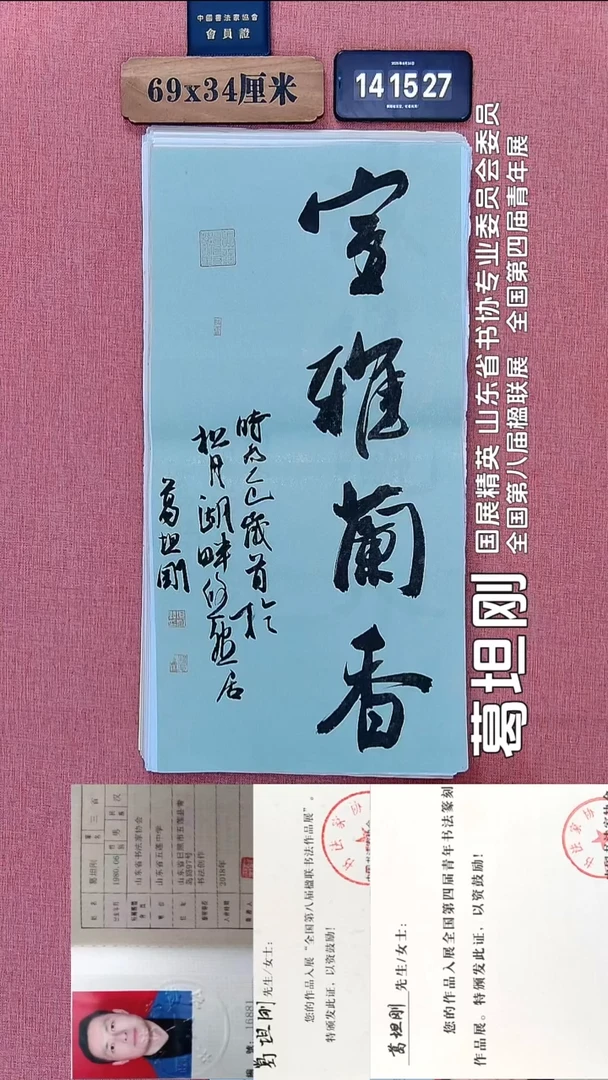 中國書法家協會
會員證
69x34厘米
14 15 27
室雅蘭香
時為乙巳歲首於
松月湖畔
居
葛坦剛
葛坦刚
国展精英 山东省书协专业委员会委员
全国第八届楹联展 全国第四届青年展
葛坦刚
1980.06
汉
山东省书法家协会
山东省五莲中学
书法创作
2018年
葛坦刚 先生/女士:
您的作品入展“全国第八届楹联书法作品展”。
特颁发此证，以资鼓励!
葛坦刚 先生/女士:
您的作品入展全国第四届青年书法篆刻
作品展。特颁发此证，以资鼓励!